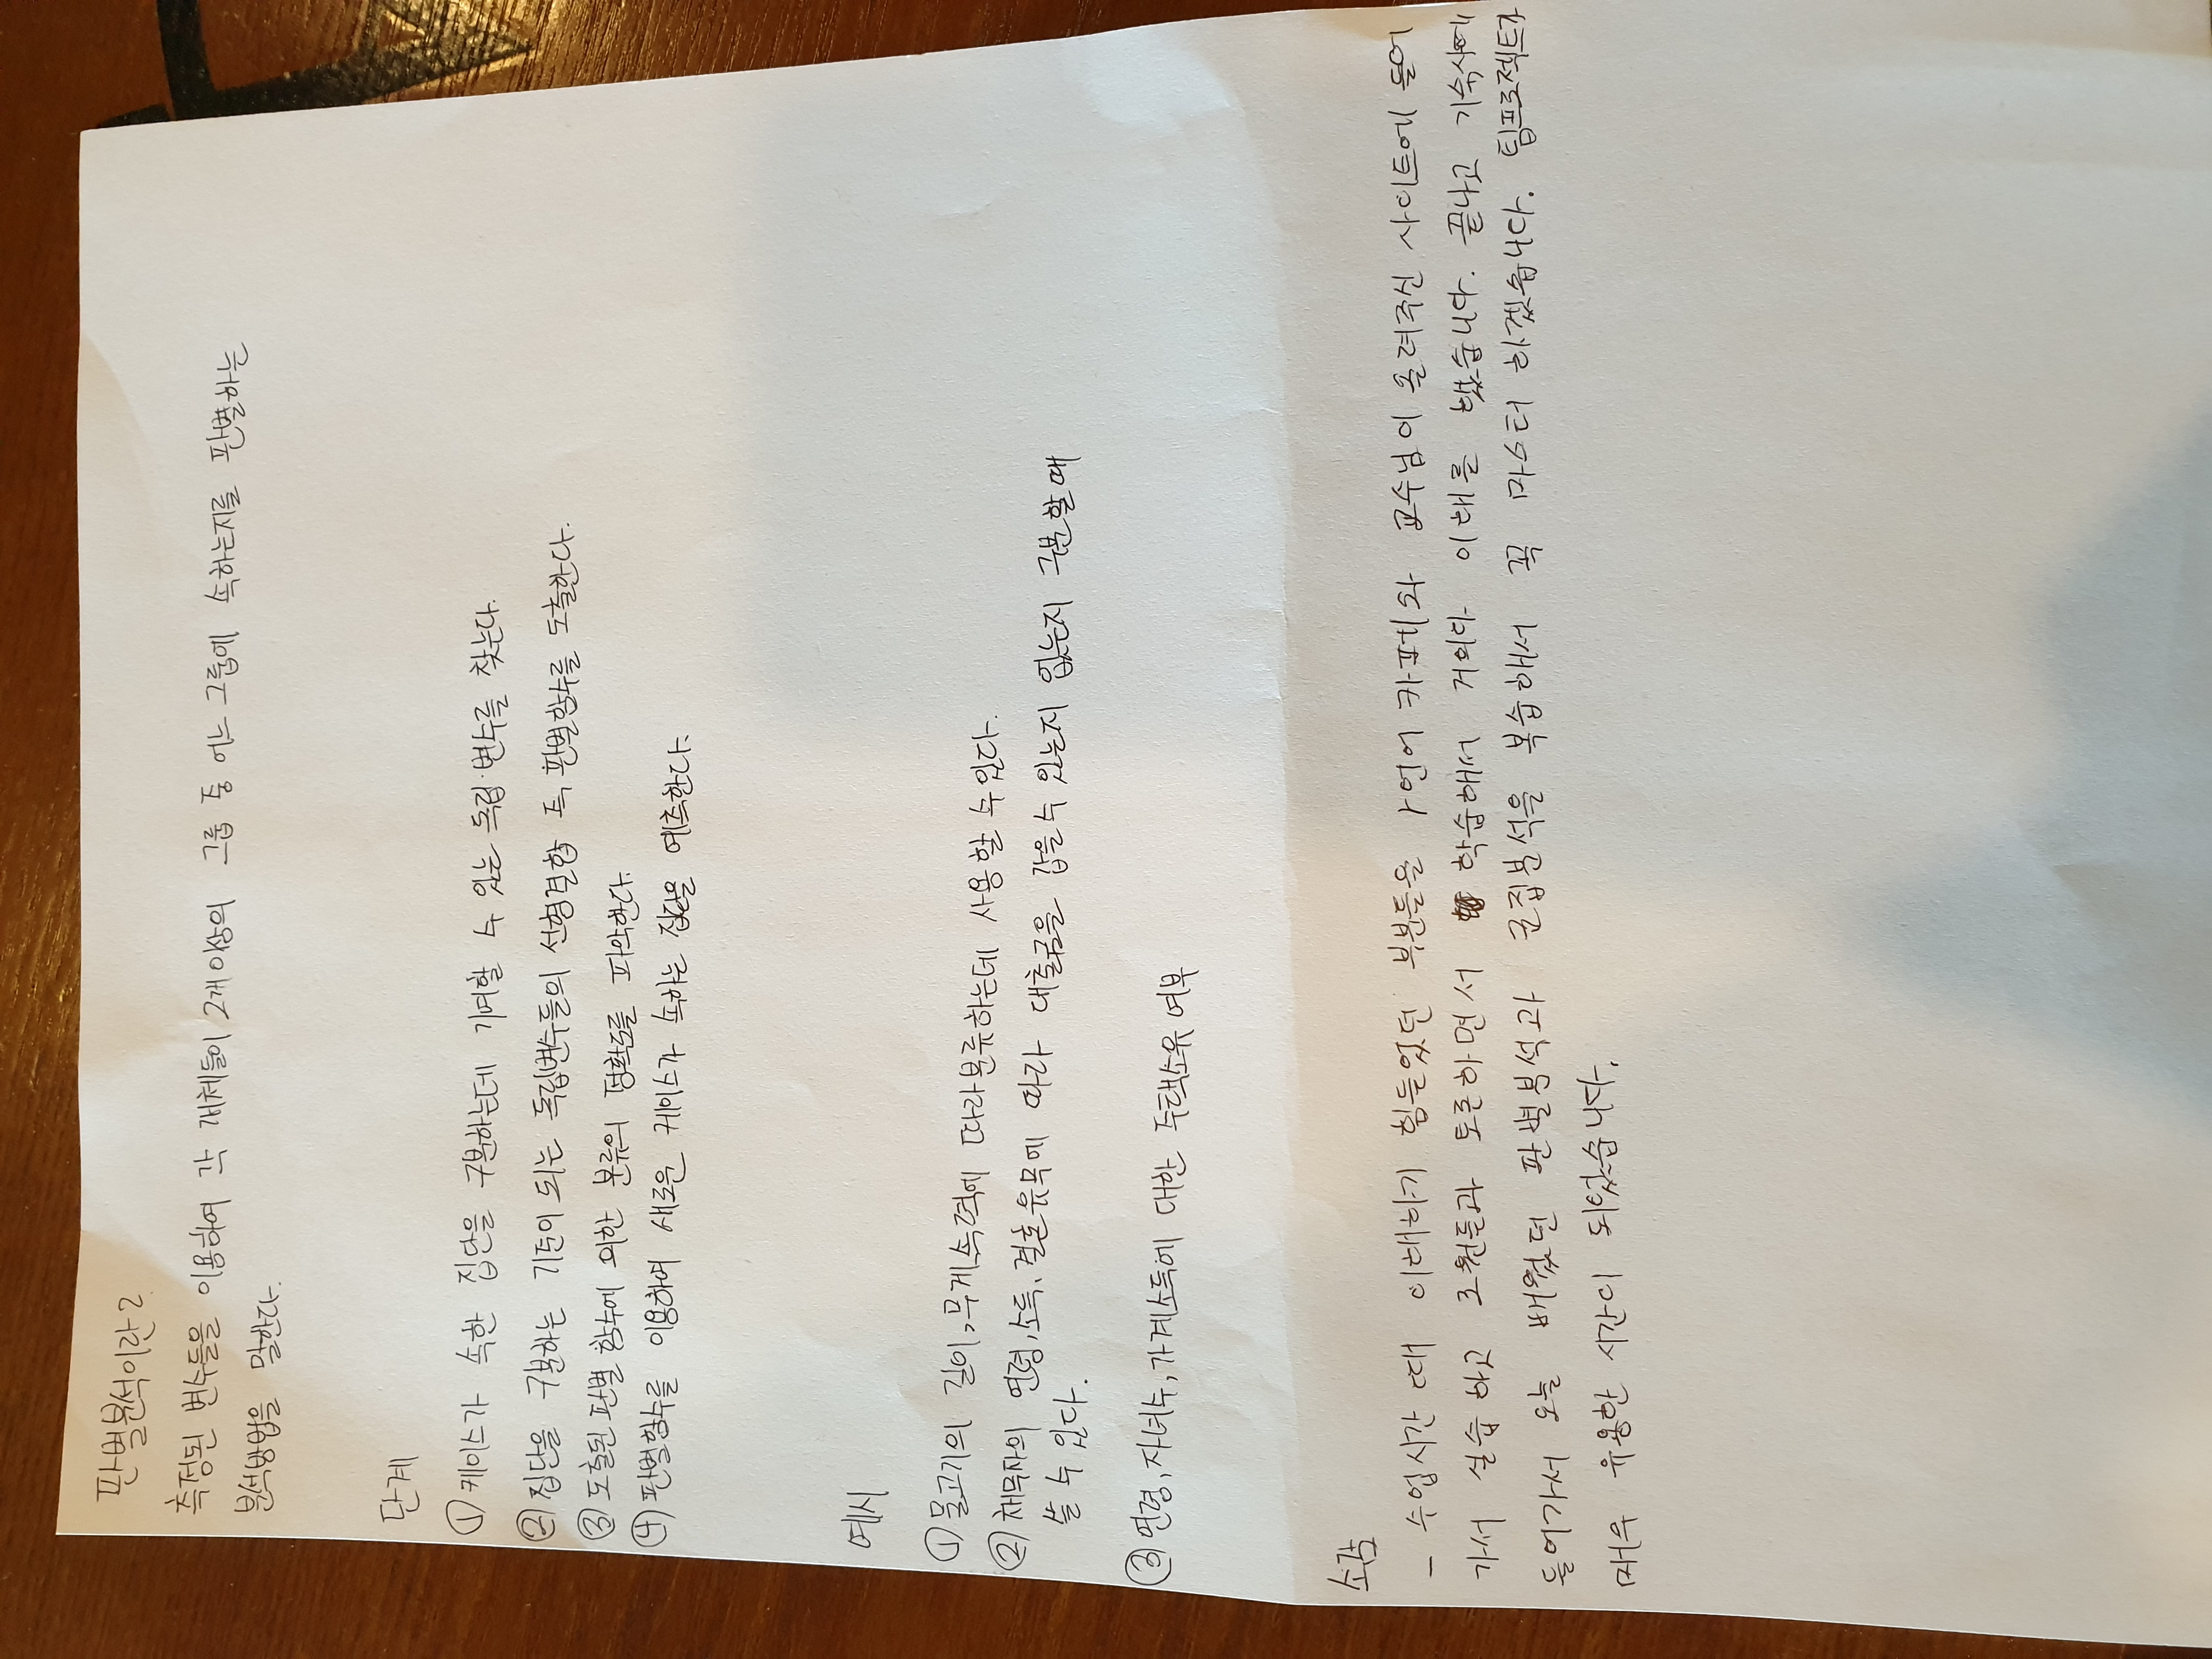 판별분석이란?
측정된 변수들을 이용하여 각 개체들이 2개이상의 그룹 중 어느 그룹에 속하는지를 판별하는
분석방법을 말한다.
단계
① 케이스가 속한 집단을 구분하는데 기여할 수 있는 독립변수를 찾는다.
② 집단을 구분하는 기준이 되는 독립변수들의 선형결합 즉 판별함수를 도출한다.
③ 도출된 판별 함수에 의한 분류의 정확도를 파악한다.
④ 판별함수를 이용하여 새로운 케이스가 속하는 집단을 예측한다.
예시
① 물고기의 길이, 무게, 속력에 따라 분류하는데 사용할 수 있다.
② 채무자의 연령, 소득, 결혼유무에 따라 대출금을 갚을 수 있는지 없는지 구분할 때
쓸 수 있다.
③ 연령, 자녀수, 가계소득에 대한 주택소유 여부
소감
- 수업시간 때 이해하기 힘들었던 부분들을 r언어 카페와 교수님이 올려주신 사이트에 들어
가서 실습하고 조원들과 토론하면서 학습해서 거의다 이해를 했습니다. 끝나고 기숙사에
들어가서 오늘 배웠던 판별분석과 군집분석을 복습해서 꼭 마스터 하겠습니다. 팀프로젝트가
매우 유용한 시간이 되었습니다.